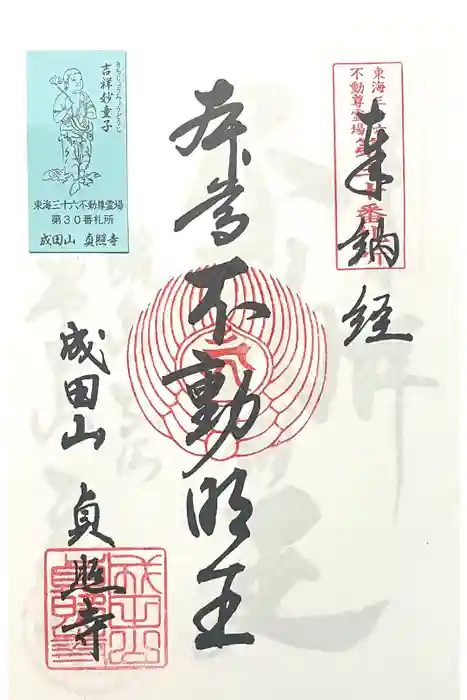 東海三十六
不動尊霊場第三十番札所
奉納経
本尊不動明王
成田山 貞照寺
成田山
貞照寺
吉祥妙童子
きちじょうみょうどうじ
東海三十六不動尊霊場
第30番札所
成田山 貞照寺